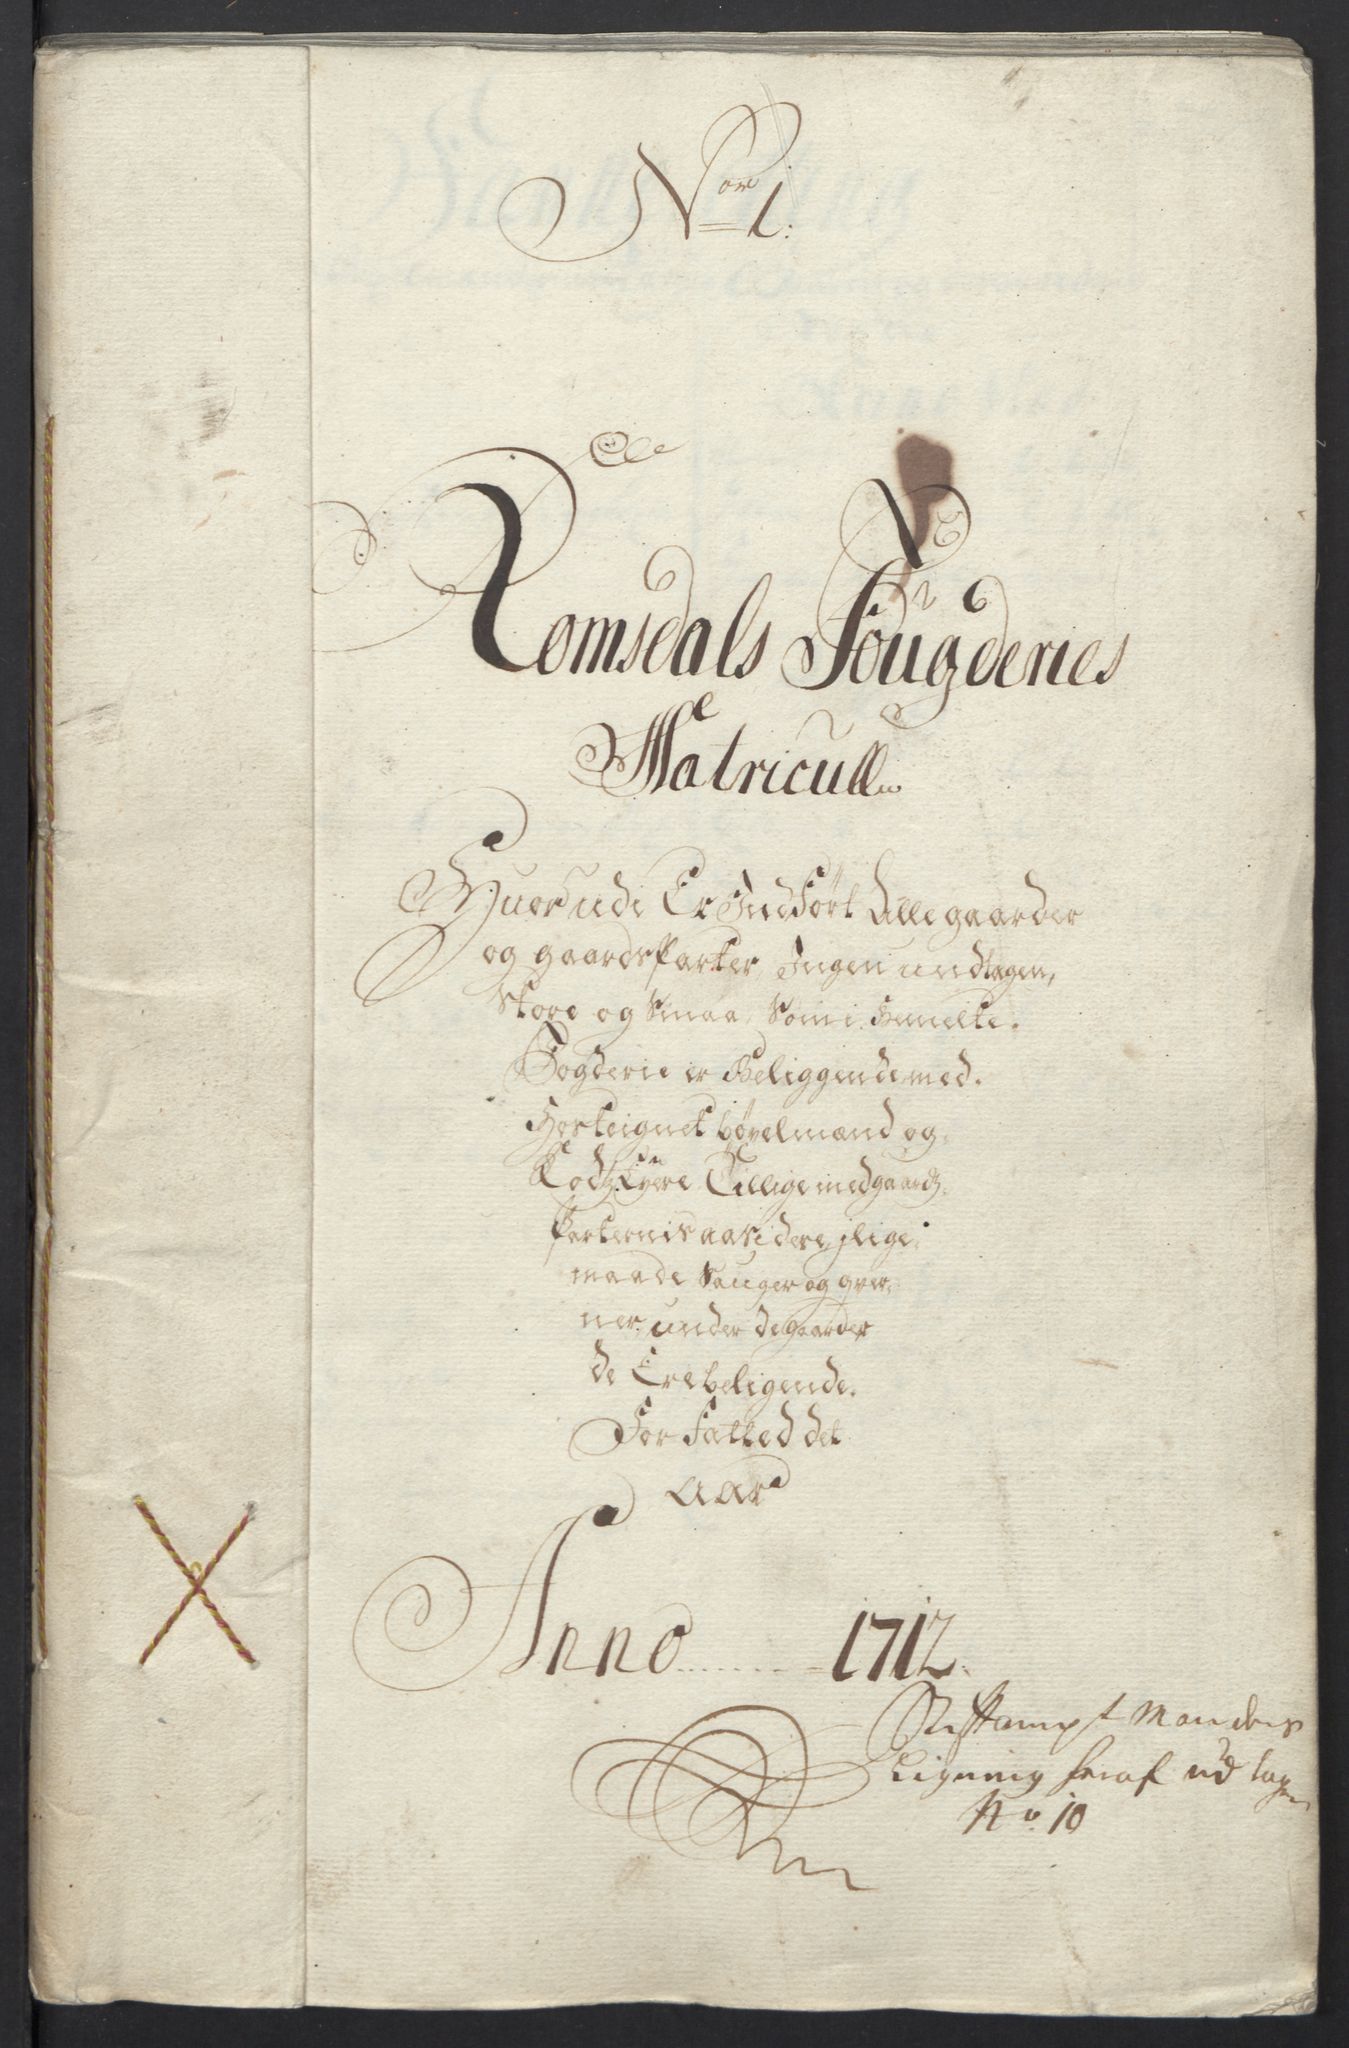 No 1.
Romsdals Fougderies
Matricull
Huorudi Er Indført Alle gaarder
og gaardsparter, Ingen undtagen,
Store og Smaa, Som i Bemelte
Fogderie er Beliggende med
Hosteignet bøxelmænd og
Lodz Eyere Tillige med gaardz
Parterni saa videre, jlige
maade Sauger og qver
ner under de gaarder
de Ere beligende.
For Fatted det
Aar
Anno 1712.
Mandens
Ligning heraf ud tagen
No. 10